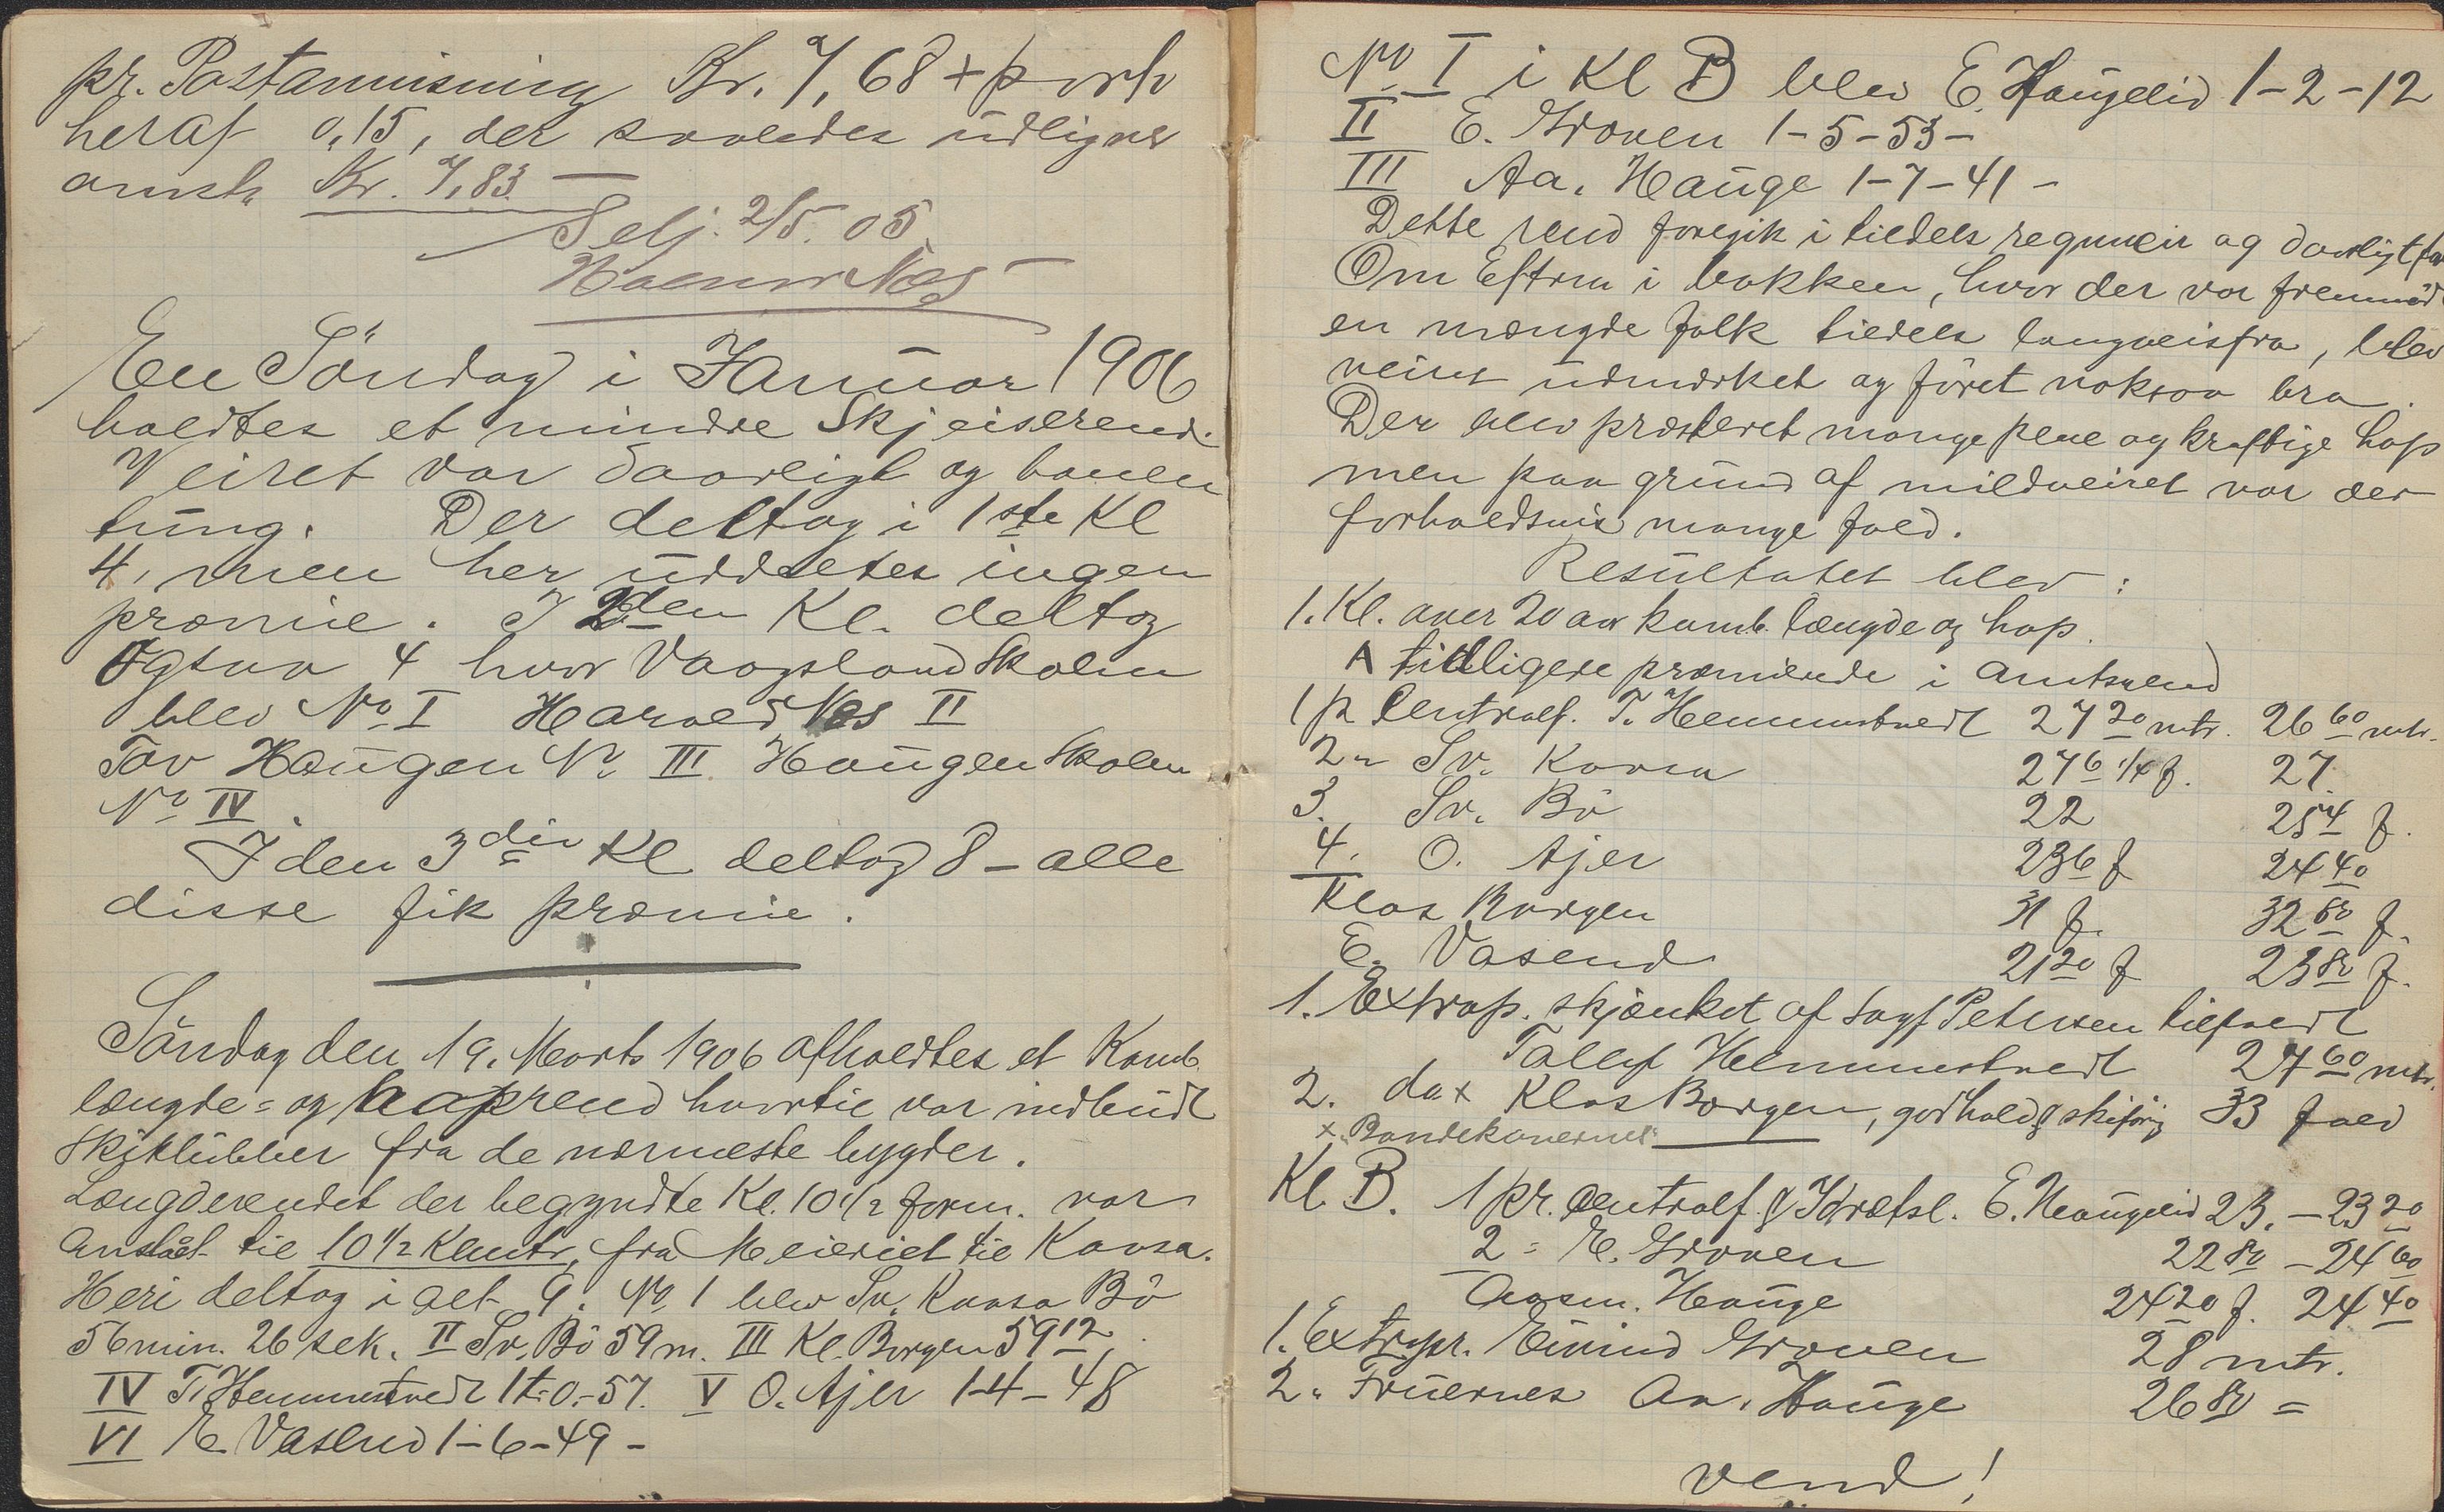 pr. Postanvisning Kr. 7,68 + porto
heraf 0,15, der saaledes udligner
amsk. Kr. 7,83. —
Selj. 2/5. 05.
Næs
En Söndag i Januar 1906
holdtes et mindre Skjeiserend.
Veiret var daarligt og banen
tung. Der deltog i 1ste Kl
4, men her uddeltes ingen
præmie. I 2den Kl. deltog
Ogsaa 4 hvor Vaagsland Skolen
blev No I Harald Næs II
Tov Haugen N. III Haugen Skolen
No IV.
I den 3die Kl deltog 8 – alle
disse fik præmie.
Söndag den 19. Marts 1906 afholdtes et Komb.
længde= og hoprend hvortil var indbudt
Skiklubber fra de nærmeste bygder.
Længderendet der begyndte Kl. 10 1/2 form. var
Anslået til 10 1/2 Klmtr, fra Meieriet til Kaasa.
Heri deltog i alt 9. No 1 blev Sv. Kaasa Bö
56 min. 26 sek. II Sv. Bö 59 m. III Kl. Borgen 59 12.
IV T. Hemmestvedt 1 t.-0.-57. V O. Ajer 1-4-48
VI E. Vasend 1-6-49 -
No I i Kl B blev E. Haugelid 1-2-12
II E. Groven 1-5-53 -
III Aa. Hauge 1-7-41 -
Dette rend foregik i tildels regnveir og daarligt føre
Om Eftrm i bakken, hvor der var fremmødt
en mængde folk tildels langveisfra, blev
veiret udmærket og föret noksaa bra.
Der blev præsteret mange pene og kraftige hop
men paa grund af mildveiret var der
forholdsvis mange fald.
Resultatet blev:
1. Kl. over 20 aar komb. længde og hop.
A tidligere præmierede i Amtsrend
1 pr Centralf. T. Hemmestvedt 27 20 mtr. 26 60 mtr.
2 " Sv. Kaasa 27 6 1/4 f. 27.
3. Sv. Bö 22 25 4 f.
4. O. Ajer 23 6 f 24 40
Klas Borgen 31 f. 32 80 f.
E. Vasend 21 20 f 23 80 f.
1. Extrap. skjænket af Sagf Petersen tilfaldt
Tallef Hemmestvedt 27 60 mtr.
2. do x Klas Borgen, god hold. & skiföring 33 fald
x Bondekonernes
Kl. B. 1 pr. Centralf. & Idrætsl. E. Haugelid 23. – 23 20
2 = E. Groven 22 80 – 24 60
Aasm. Hauge 24 20 f. 24 40
1. Extrapr. Eivind Groven 28 mtr.
2. " Fruernes Aa. Hauge 26 80 =
vend!